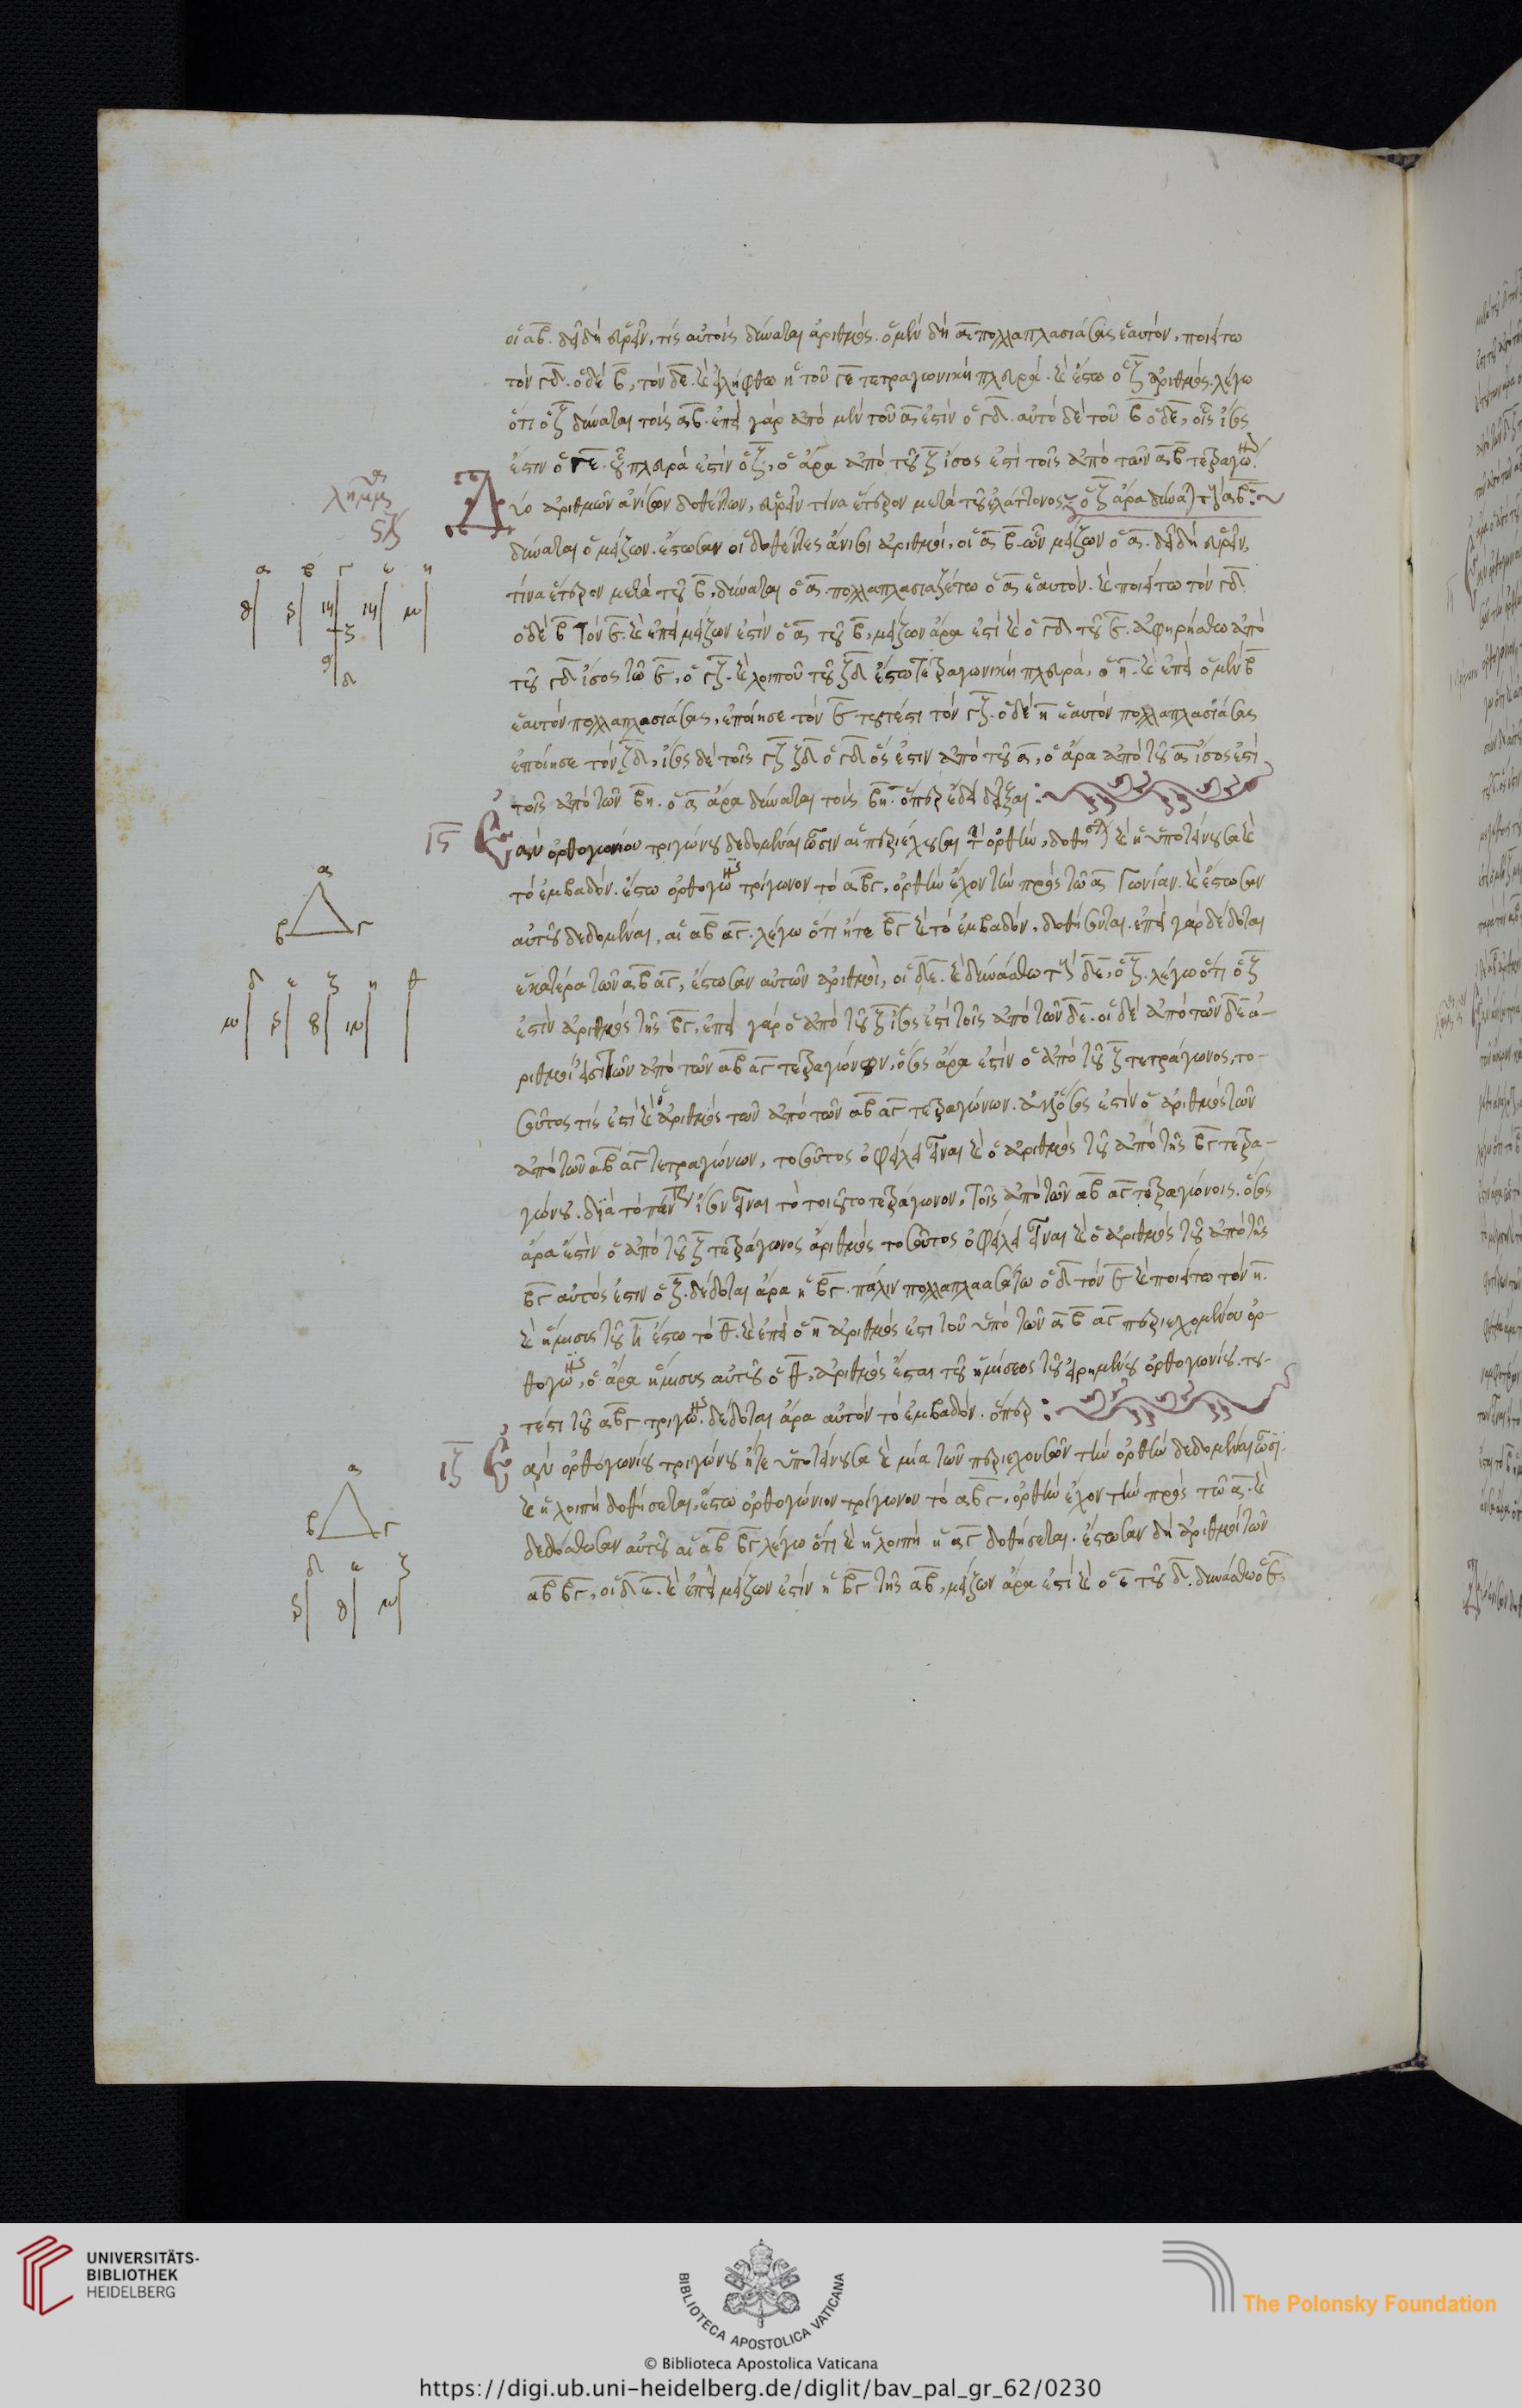 οἱ αβ. δεῖ δὴ εὑρεῖν, τίς αὐτοὺς δύναται ἀριθμός. ὁ μὲν δὴ α πολλαπλασιάσας ἑαυτόν, ποιείτω
τὸν γδ. ὁ δὲ β, τὸν δε. καὶ εἰλήφθω ἡ τοῦ γε τετραγωνικὴ πλευρά. καὶ ἔστω ὁ ζ ἀριθμός. λέγω
ὅτι ὁ ζ δύναται τοὺς αβ. ἐπεὶ γὰρ ἀπὸ μὲν τοῦ α ἐστὶν ὁ γδ. ἀπὸ δὲ τοῦ β ὁ δε, οἷς ἴσος
ἐστιν ὁ γε. οὗ πλευρά ἐστὶν ὁ ζ, ὁ ἄρα ἀπὸ τοῦ ζ ἴσος ἐστὶ τοῖς ἀπὸ τῶν αβ τετραγώ.
λῆμμα
Δύο ἀριθμῶν ἀνίσων δοθέντων, εὑρεῖν τίνα ἕτερον μετὰ τοῦ ἐλάττονος ὁ ζ ἄρα δύναται τοὺς αβ:
δύναται ὁ μείζων. ἔστωσαν οἱ δοθέντες ἄνισοι ἀριθμοί, οἱ α β. ὧν μείζων ὁ α. δεῖ δὴ εὑρεῖν,
τίνα ἕτερον μετὰ τοῦ β, δύναται ὁ α. πολλαπλασιαζέτω ὁ α ἑαυτόν. καὶ ποιείτω τὸν γδ.
ὁ δὲ β τὸν ε. καὶ ἐπεὶ μείζων ἐστὶν ὁ α τοῦ β, μείζων ἄρα ἐστὶ καὶ ὁ γδ τοῦ ε. ἀφῃρήσθω ἀπὸ
τοῦ γδ ἴσος τῷ ε, ὁ γζ. καὶ λοιποῦ τοῦ ζδ ἔστω τετραγωνικὴ πλευρά, ὁ η. καὶ ἐπεὶ ὁ μὲν β
ἑαυτὸν πολλαπλασιάσας, ἐποίησε τὸν ε τουτέστι τὸν γζ. ὁ δὲ η ἑαυτὸν πολλαπλασιάσας
ἐποίησε τὸν ζδ, ἴσος δὲ τοῖς γζ ζδ ὁ γδ ὅς ἐστιν ἀπὸ τοῦ α, ὁ ἄρα ἀπὸ τοῦ α ἴσος ἐστὶ
τοῖς ἀπὸ τῶν βη. ὁ α ἄρα δύναται τοὺς βη. ὅπερ ἔδει δεῖξαι:
ις Ἐὰν ὀρθογωνίου τριγώνου δεδομέναι ὦσιν αἱ περιέχουσαι τὴν ὀρθήν, δοθήσεται καὶ ἡ ὑποτείνουσα καὶ
τὸ ἐμβαδόν. ἔστω ὀρθογώ τρίγωνον τὸ αβγ, ὀρθὴν ἔχον τὴν πρὸς τῷ α γωνίαν. καὶ ἔστωσαν
αὐτοῦ δεδομέναι, αἱ αβ αγ. λέγω ὅτι ἥτε βγ καὶ τὸ ἐμβαδόν, δοθήσονται. ἐπεὶ γὰρ δέδοται
ἑκατέρα τῶν αβ αγ, ἔστωσαν αὐτῶν ἀριθμοί, οἱ δε. καὶ δυνάσθω τοὺς δε, ὁ ζ. λέγω ὅτι ὁ ζ
ἐστὶν ἀριθμὸς τῆς βγ, ἐπεὶ γὰρ ὁ ἀπὸ τοῦ ζ ἴσος ἐστὶ τοῖς ἀπὸ τῶν δε. οἱ δὲ ἀπὸ τῶν δε ἀ-
ριθμοί εἰσι τῶν ἀπὸ τῶν αβ αγ τετραγώνων, ὅσος ἄρα ἐστὶν ὁ ἀπὸ τοῦ ζ τετράγωνος, το-
σοῦτος τίς ἐστὶ καὶ ὁ ἀριθμὸς τῶν ἀπὸ τῶν αβ αγ τετραγώνων. ὅσος ἐστὶν ὁ ἀριθμὸς τῶν
ἀπὸ τῶν αβ αγ τετραγώνων, τοσοῦτος ὀφείλει εἶναι καὶ ὁ ἀριθμὸς τοῦ ἀπὸ τῆς βγ τετρα-
γώνου. διὰ τὸ ἴσον εἶναι τὸ τοιοῦτο τετράγωνον, τοῖς ἀπὸ τῶν αβ αγ τετραγώνοις. ὅσος
ἄρα ἐστὶν ὁ ἀπὸ τοῦ ζ τετράγωνος ἀριθμὸς τοσοῦτος ὀφείλει εἶναι καὶ ὁ ἀριθμὸς τοῦ ἀπὸ τῆς
βγ αὐτός ἐστιν ὁ ζ. δέδοται ἄρα ἡ βγ. πάλιν πολλαπλασιασάτω ὁ δ τὸν ε καὶ ποιείτω τὸν η.
καὶ ἥμισυς τοῦ η ἔστω τὸ θ. καὶ ἐπεὶ ὁ η ἀριθμός ἐστι τοῦ ὑπὸ τῶν αβ αγ περιεχομένου ὀρ-
θογω, ὁ ἄρα ἥμισυς αὐτοῦ ὁ θ, ἀριθμὸς ἔσται τοῦ ἡμίσεος τοῦ εἰρημένου ὀρθογωνίου. του-
τέστι τοῦ αβγ τριγώ. δέδοται ἄρα αὐτὸν τὸ ἐμβαδόν. ὅπερ:
ιζ Ἐὰν ὀρθογωνίου τριγώνου ἥτε ὑποτείνουσα καὶ μία τῶν περιεχουσῶν τὴν ὀρθὴν δεδομέναι ὦσι.
καὶ ἡ λοιπὴ δοθήσεται, ἔστω ὀρθογώνιον τρίγωνον τὸ αβγ, ὀρθὴν ἔχον τὴν πρὸς τῷ α. καὶ
δεδόσθωσαν αὐτοῦ αἱ αβ βγ λέγω ὅτι καὶ ἡ λοιπὴ ἡ αγ δοθήσεται. ἔστωσαν δὴ ἀριθμοὶ τῶν
αβ βγ, οἱ δ ε. καὶ ἐπεὶ μείζων ἐστὶν ἡ βγ τῆς αβ, μείζων ἄρα ἐστὶ καὶ ὁ ε τοῦ δ. δυνάσθω ὁ ε,
α β γ ε η
ζ
δ
α
β γ
δ ε ζ η θ
α
β γ
δ ε ζ
UNIVERSITÄTS-
BIBLIOTHEK
HEIDELBERG
BIBLIOTECA APOSTOLICA VATICANA
The Polonsky Foundation
© Biblioteca Apostolica Vaticana
https://digi.ub.uni-heidelberg.de/diglit/bav_pal_gr_62/0230